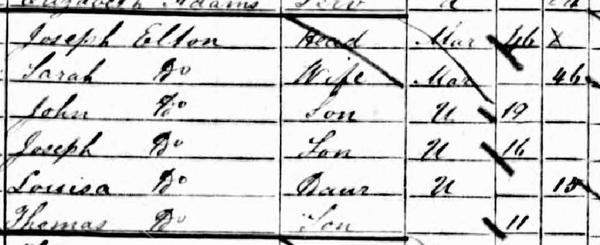 Elizabeth Adams Serv U
Joseph Elton Head Mar 46
Sarah Do Wife Mar 46
John Do Son U 19
Joseph Do Son U 16
Louisa Do Daur U 15
Thomas Do Son 11